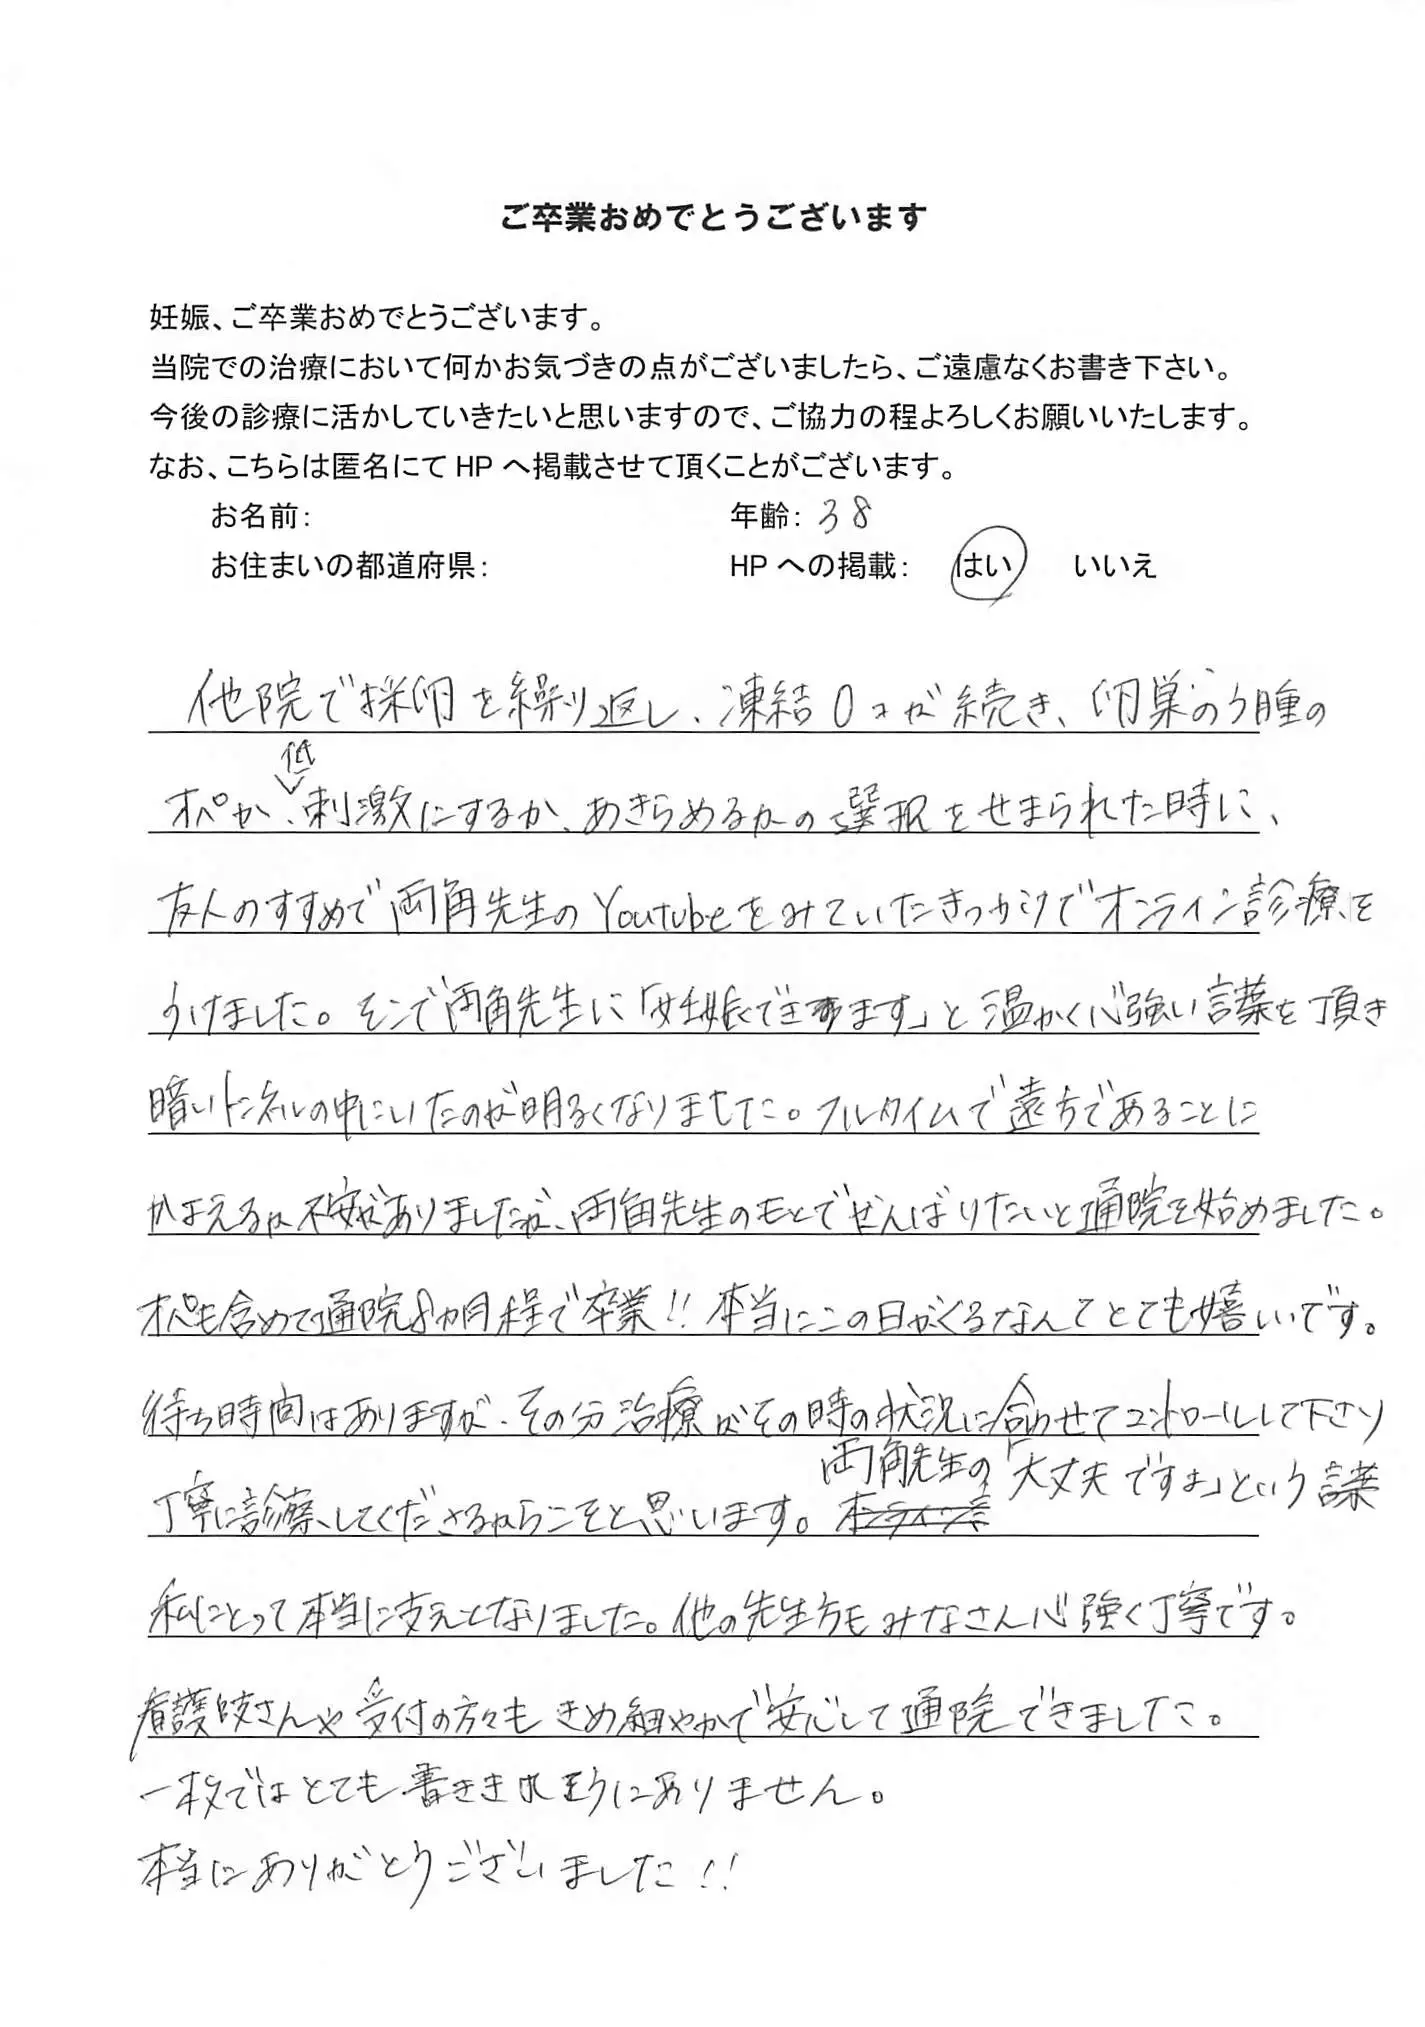 ご卒業おめでとうございます
妊娠、ご卒業おめでとうございます。
当院での治療において何かお気づきの点がございましたら、ご遠慮なくお書き下さい。
今後の診療に活かしていきたいと思いますので、ご協力の程よろしくお願いいたします。
なお、こちらは匿名にて HP へ掲載させて頂くことがございます。
お名前: 年齢: 38
お住まいの都道府県: HP への掲載: はい いいえ
他院で採卵を繰り返し、凍結0コが続き、卵巣のう腫の
オペか、低刺激にするか、あきらめるかの選択をせまられた時に、
友人のすすめで両角先生のYoutubeをみていたきっかけでオンライン診療を
うけました。そこで両角先生に「妊娠できます」と温かく心強い言葉を頂き
暗いトンネルの中にいたのが明るくなりました。フルタイムで遠方であることに
かよえるか不安がありましたが、両角先生のもとでがんばりたいと通院を始めました。
オペも含めて通院8ヵ月程で卒業!! 本当にこの日がくるなんてとても嬉しいです。
待ち時間はありますが、その分治療がその時の状況に合わせてコントロールして下さり
丁寧に診察してくださるからこそと思います。両角先生の「大丈夫ですよ」という言葉
私にとって本当に支えとなりました。他の先生方もみなさん心強く丁寧です。
看護師さんや受付の方々もきめ細やかで安心して通院できました。
一枚ではとても書ききれそうにありません。
本当にありがとうございました!!